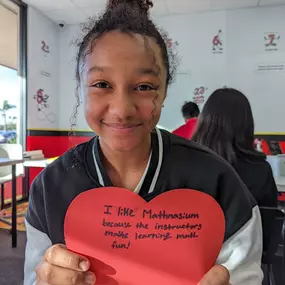 I like Mathnasium
because the instructors
make learning math
fun!